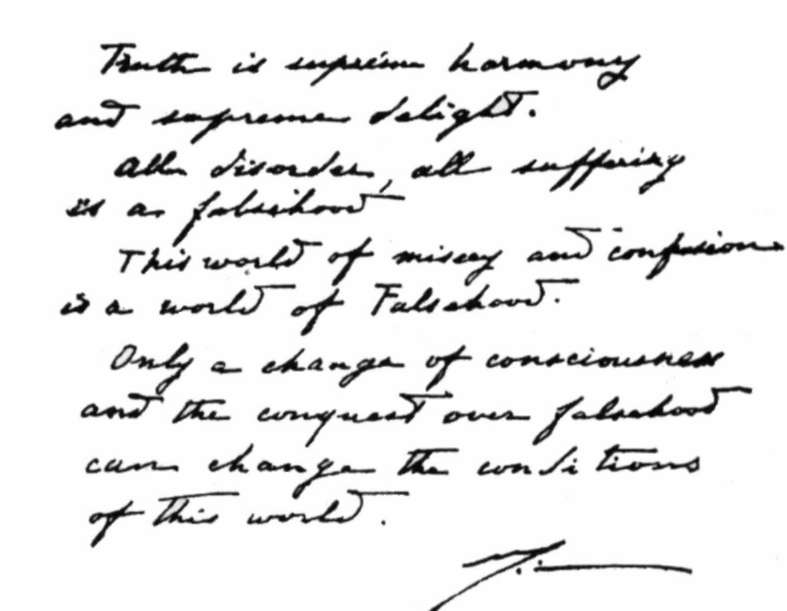 Truth is supreme harmony
and supreme delight.
All disorder, all suffering
is a falsehood
This world of misery and confusion
is a world of Falsehood.
Only a change of consciousness
and the conquest over falsehood
can change the conditions
of this world.